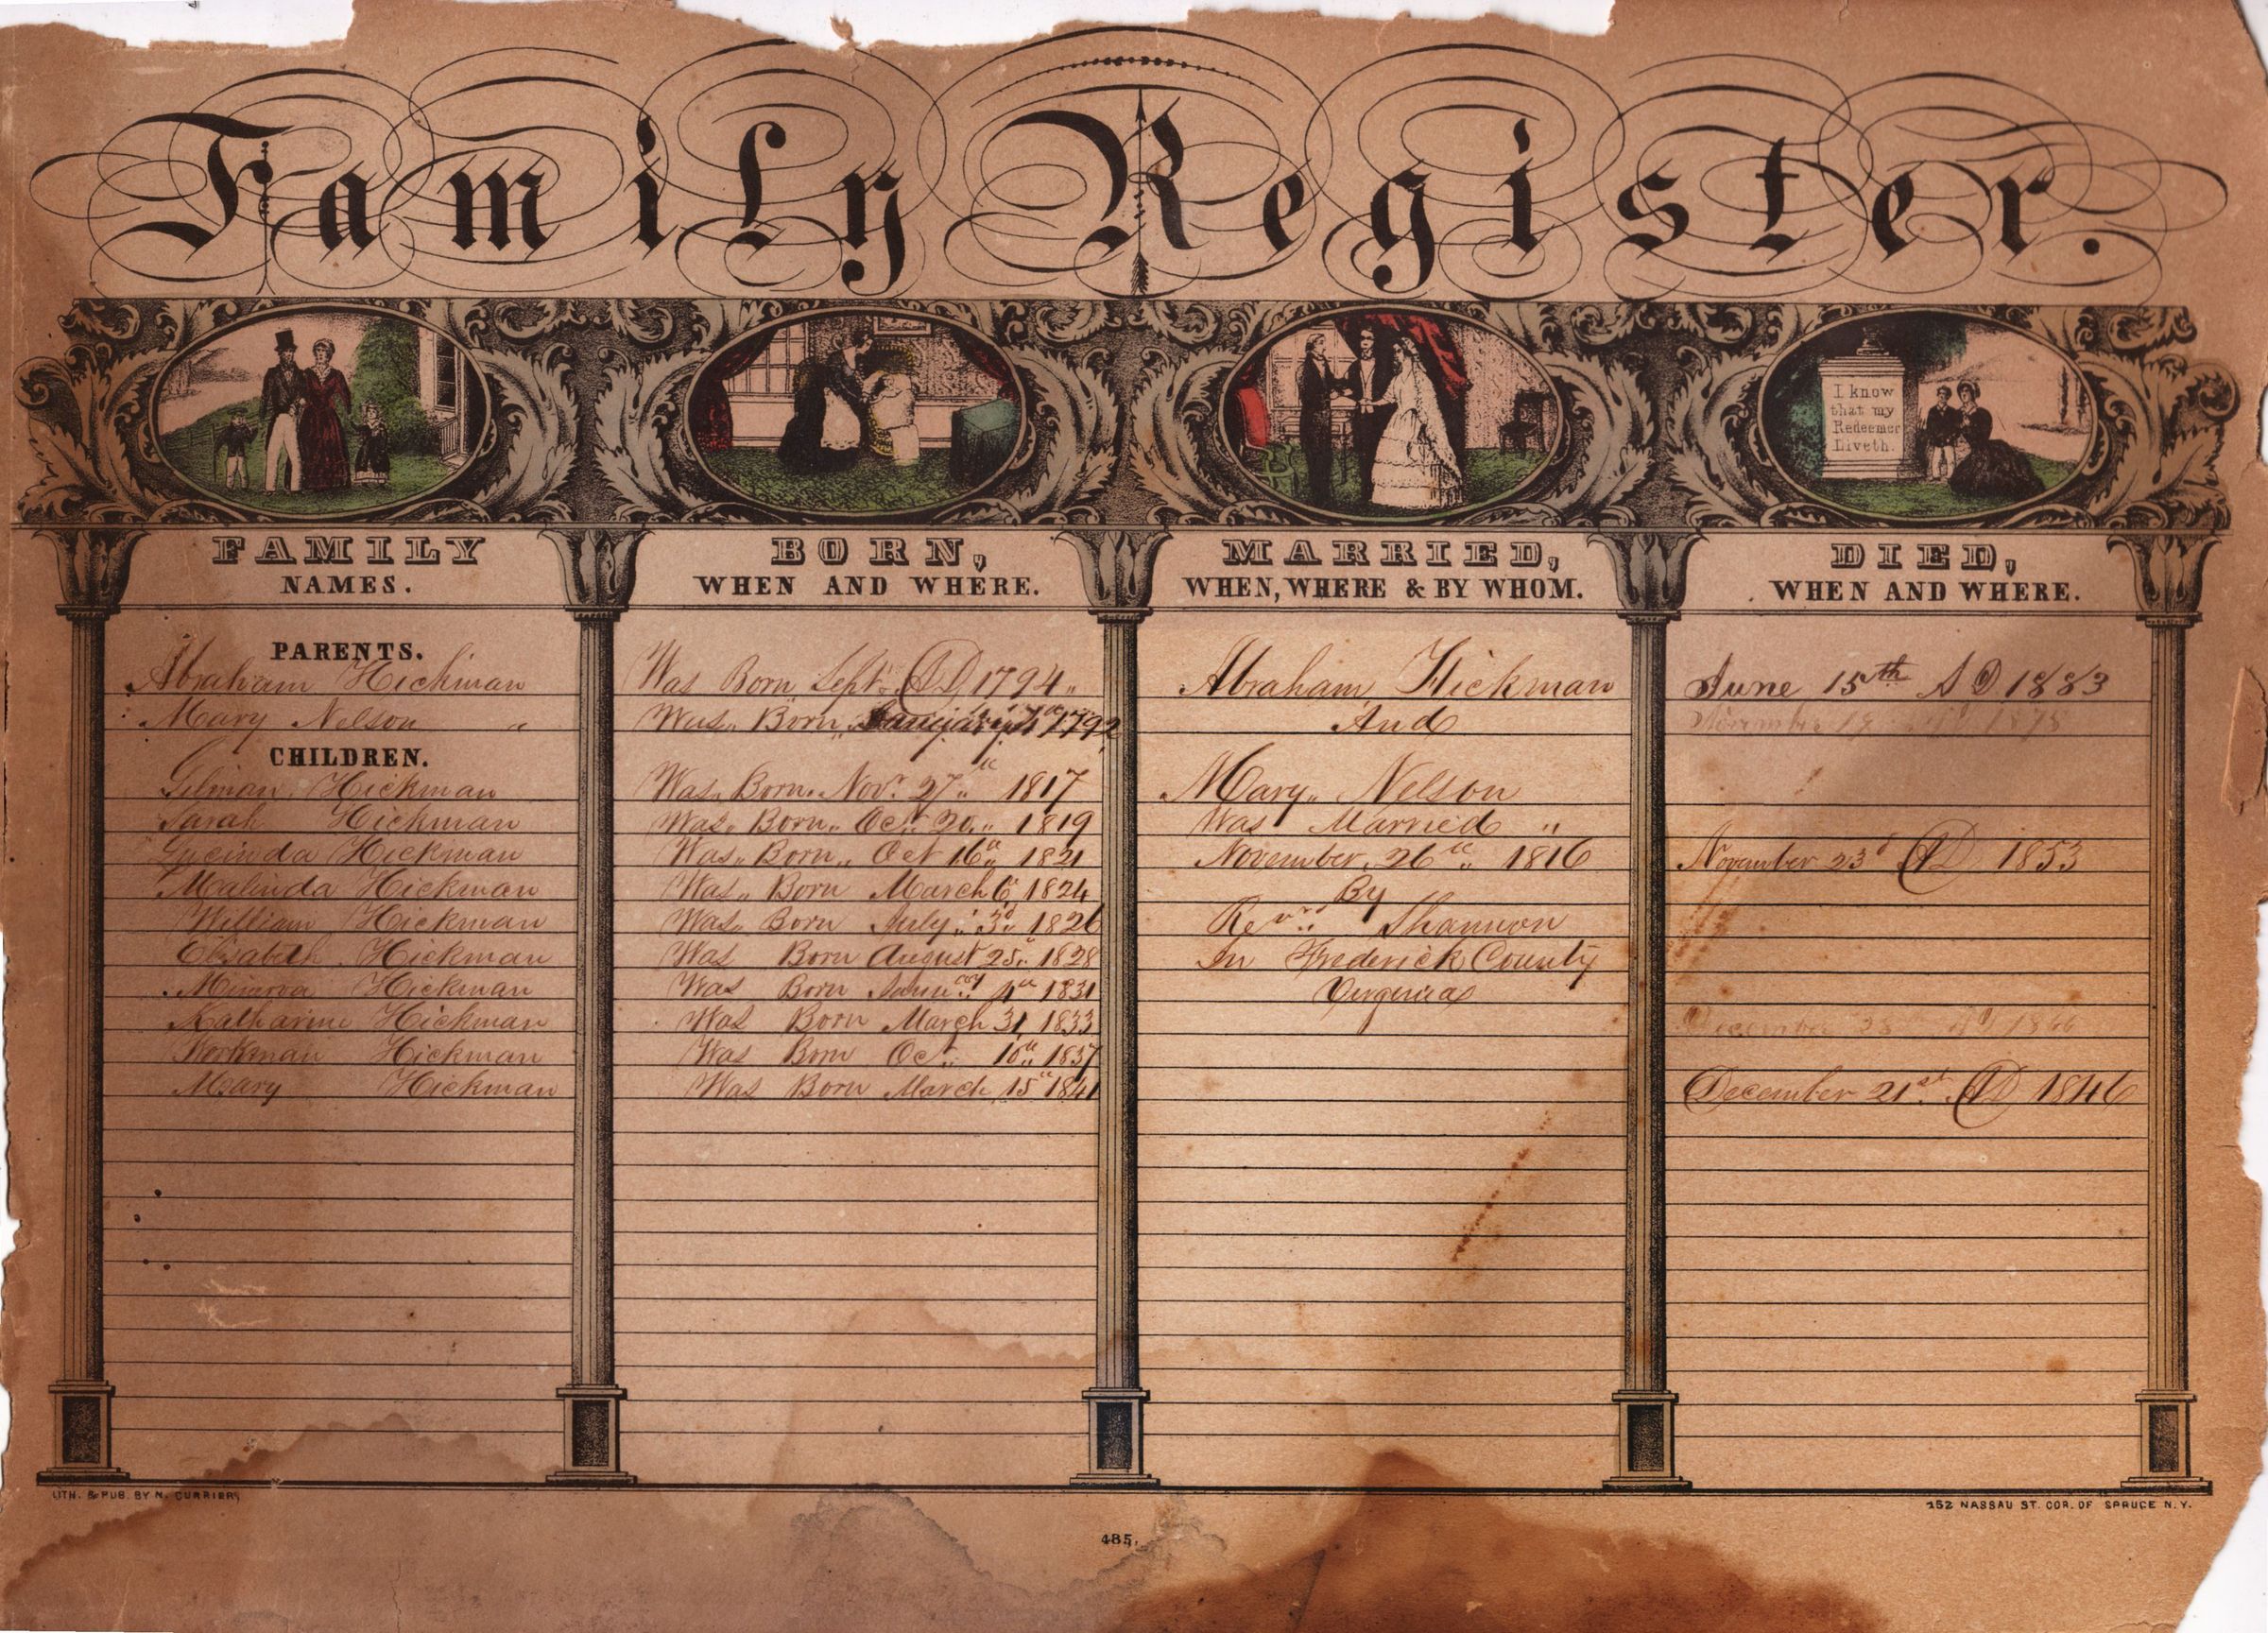 Family Register.
I know
that my
Redeemer
Liveth.
FAMILY
NAMES.
BORN,
WHEN AND WHERE.
MARRIED,
WHEN, WHERE & BY WHOM.
DIED,
WHEN AND WHERE.
PARENTS.
Abraham Hickman
Was Born Sept. AD 1794
Abraham Hickman
June 15th AD 1883
Mary Nelson "
Was Born January 1792
And
1878
CHILDREN.
Gilman Hickman
Was Born Nov. 27th 1817
Mary Nelson
Sarah Hickman
Was Born Oct 20 1819
Was Married "
Lucinda Hickman
Was Born Oct 16th 1821
November 26th 1816
November 23d AD 1853
Malinda Hickman
Was Born March 6 1824
By
William Hickman
Was Born July 3d 1826
Revrd Shannon
Elisabeth Hickman
Was Born August 25 1828
In Frederick County
Minerva Hickman
Was Born 1831
Virginia
Katharine Hickman
Was Born March 31 1833
December
Workman Hickman
Was Born Oct 10th 1837
Mary Hickman
Was Born March 15th 1841
December 21st AD 1846
LITH. & PUB. BY N. CURRIER,
152 NASSAU ST. COR. OF SPRUCE N.Y.
485.